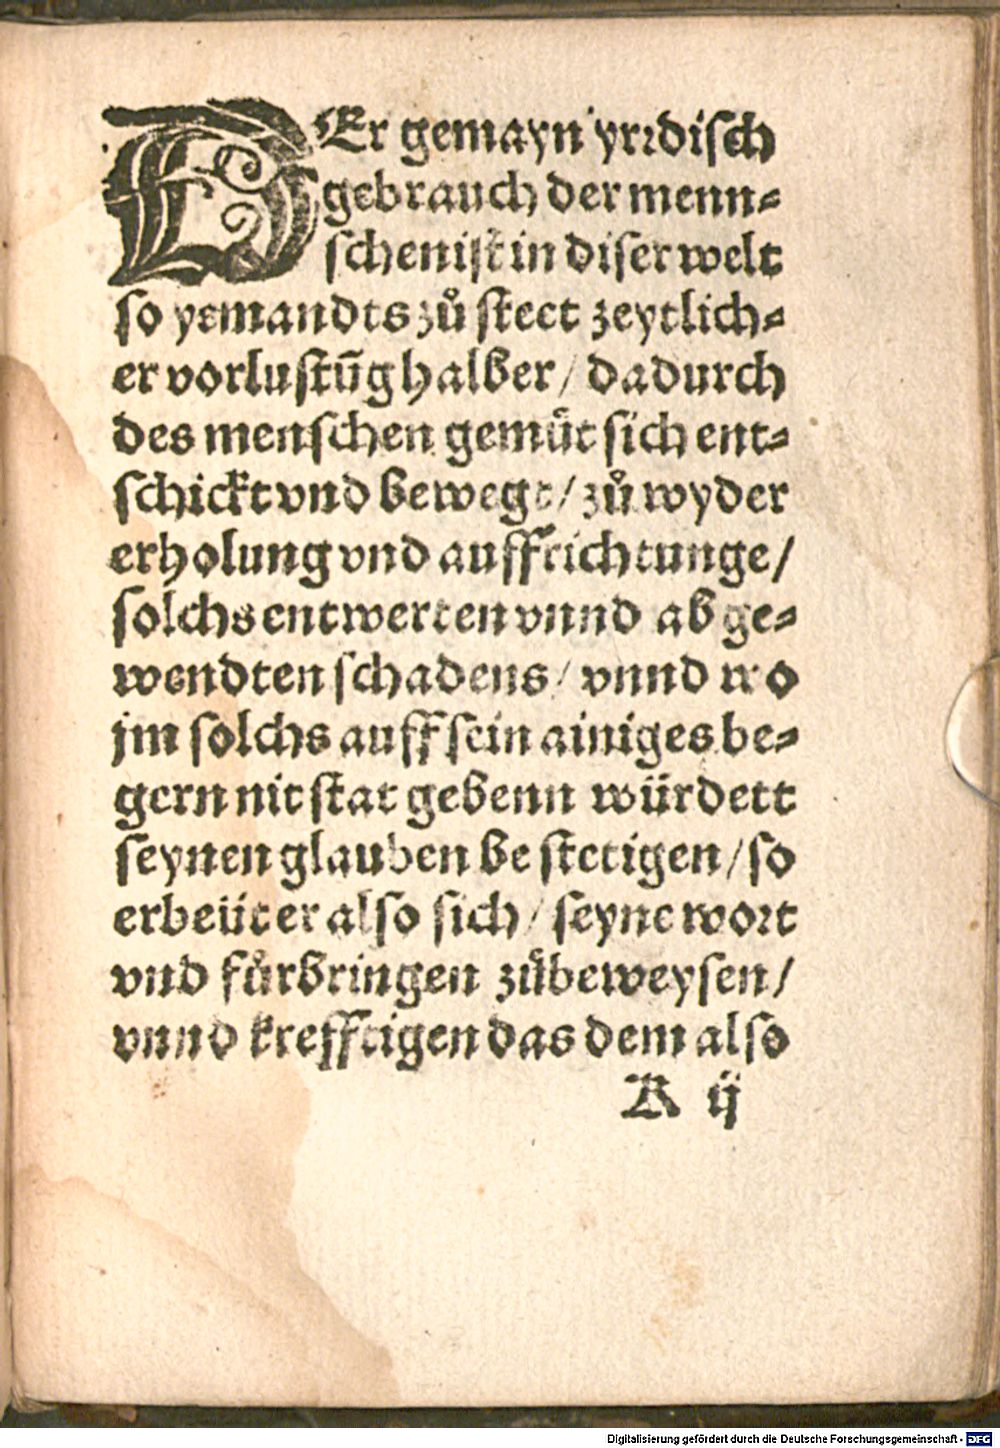 DEr gemayn yrrdiſch
gebrauch der menn⸗
ſchen iſt in diſer welt
ſo yemandts zuͦ ſteet zeytlich⸗
er vorluſtūg halber / dadurch
des menſchen gemuͤt ſich ent⸗
ſchickt vnd bewegt / zuͦ wyder
erholung vnd auffrichtunge /
ſolchs entwerten vnnd abge⸗
wendten ſchadens / vnnd wo
jm ſolchs auff ſein ainiges be⸗
gern nit ſtat gebenn wuͤrdett
ſeynen glauben beſtetigen / ſo
erbeuͤt er alſo ſich / ſeyne wort
vnd fuͤrbringen zuͦbeweyſen /
vnnd krefftigen das dem alſo
A ij
Digitalisierung gefördert durch die Deutsche Forschungsgemeinschaft - DFG